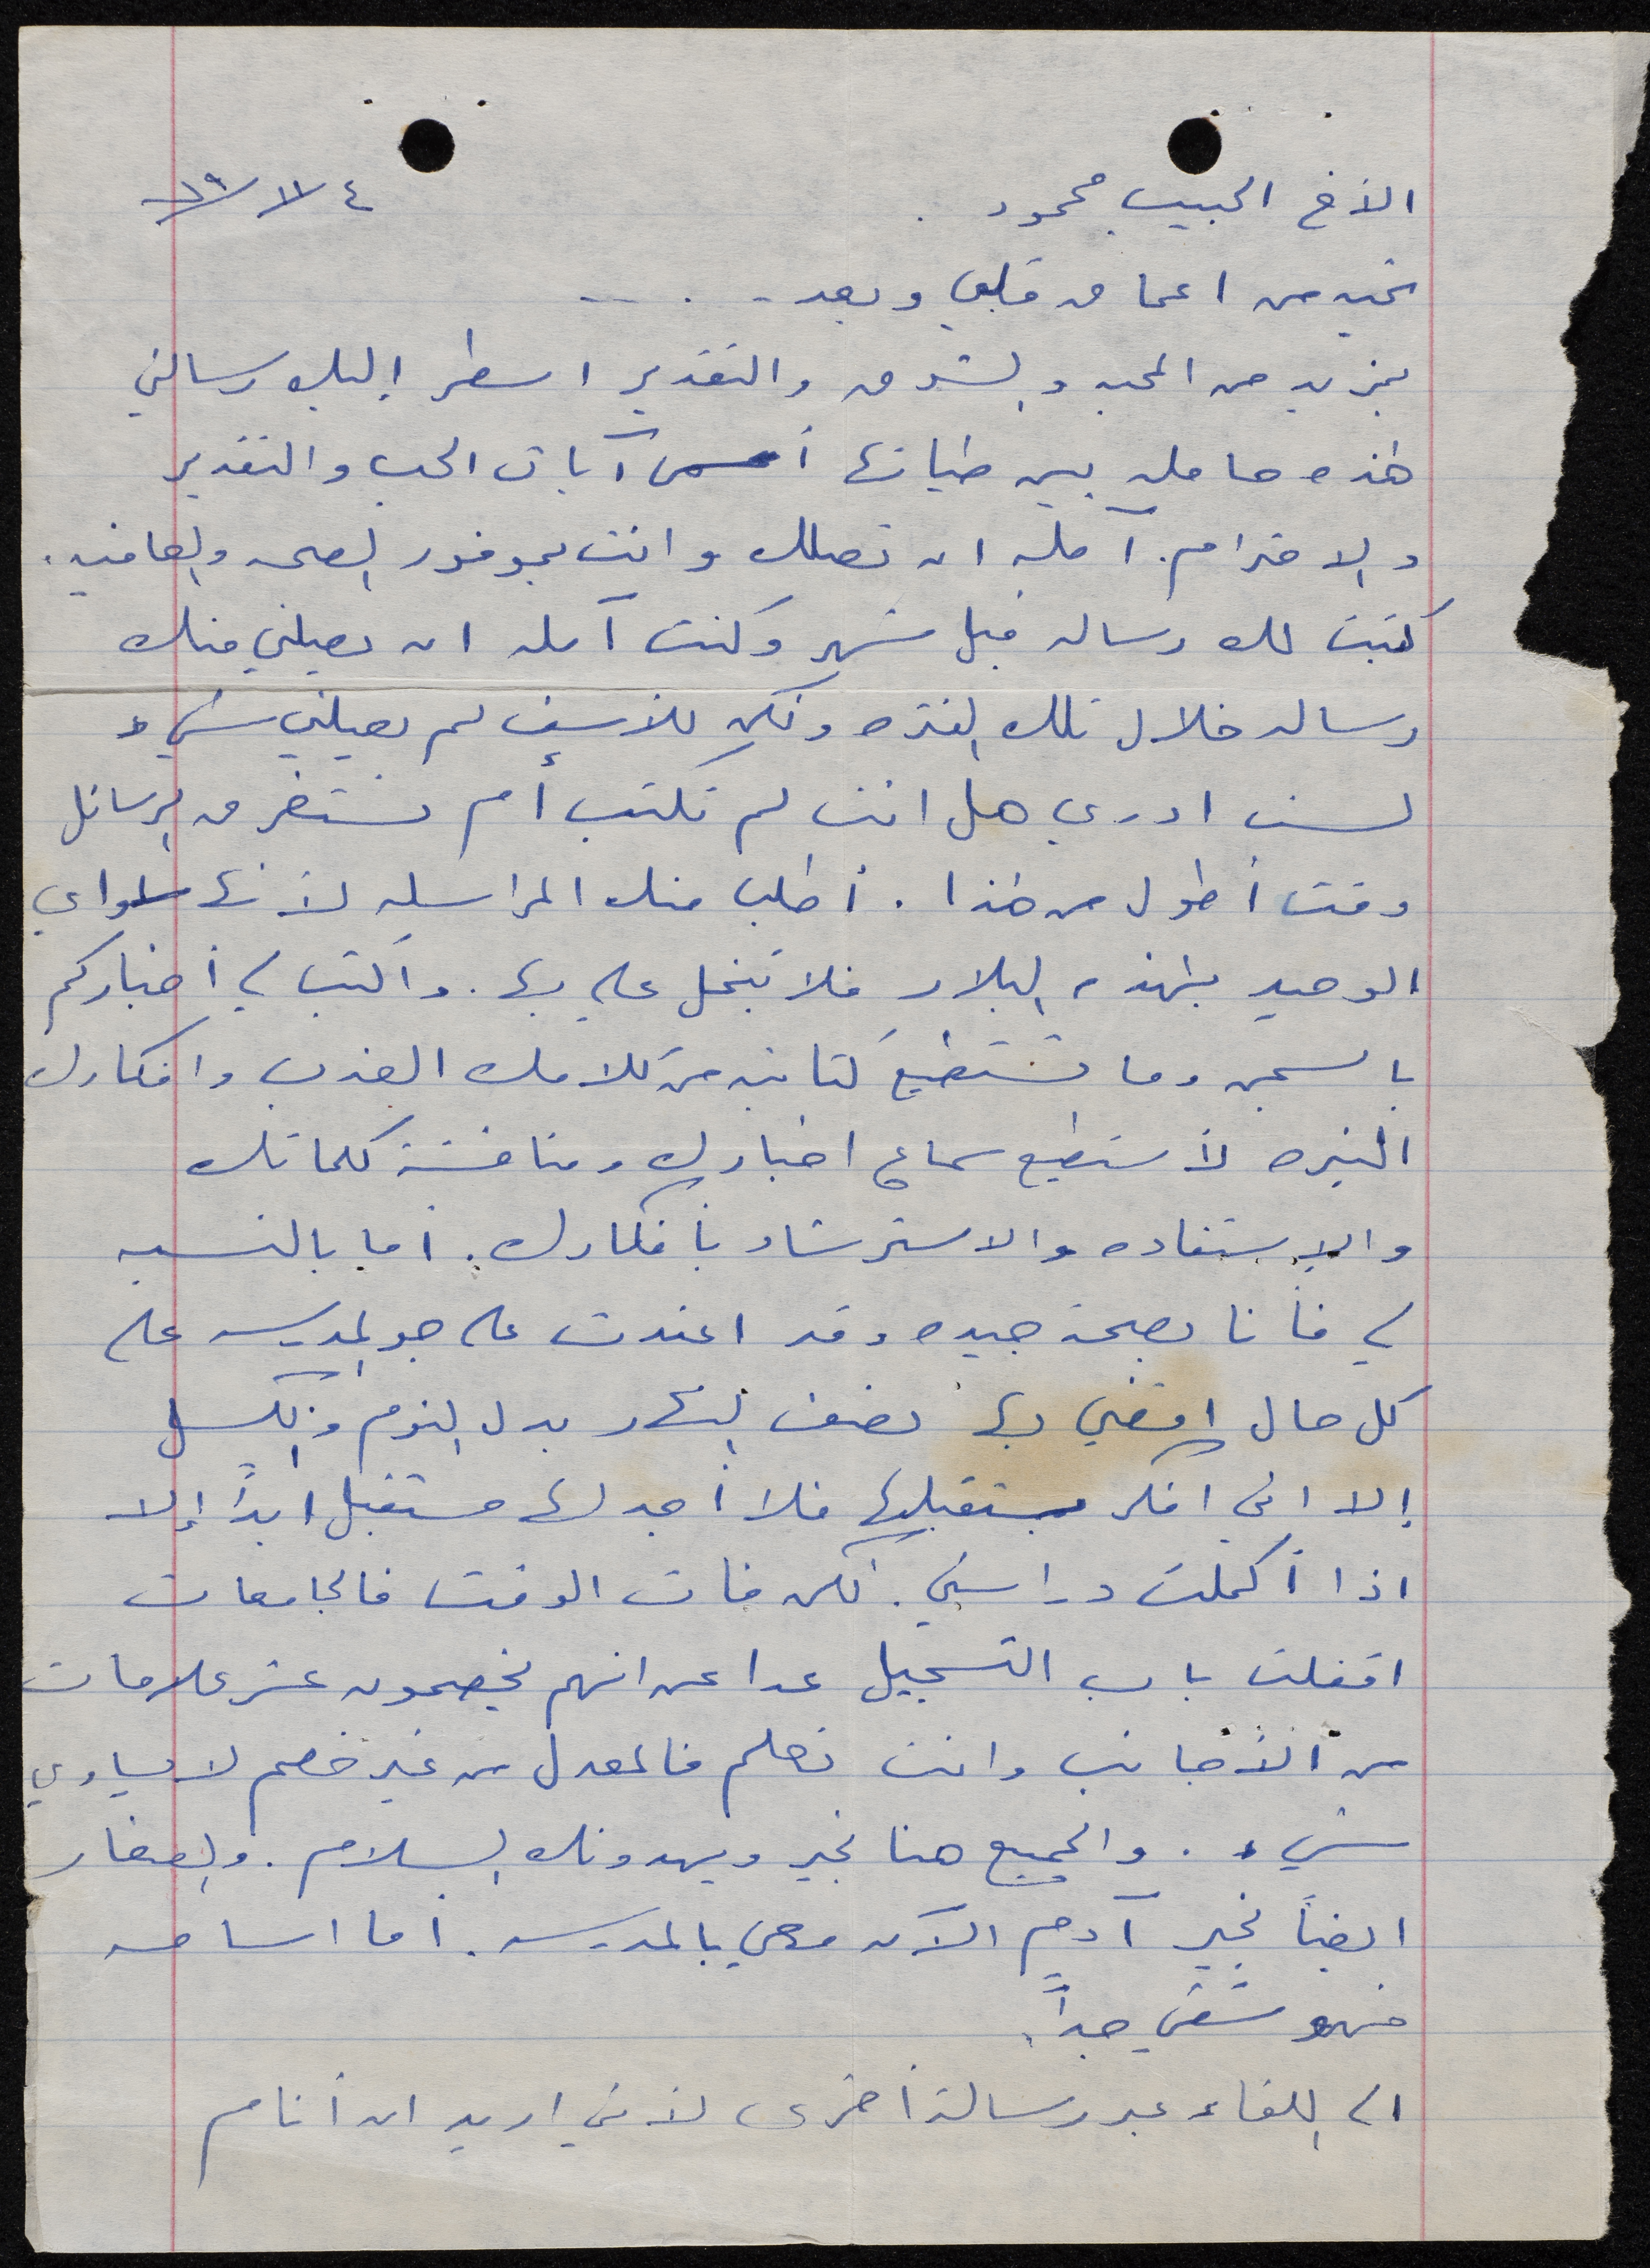 الأخ الحبيب محمود .
تحيه من اعماق قلبي وبعد - . . --
بمزيد من المحبه والشوق والتقدير اسطر إليك رسالتي
هذه حامله بين طياتها أسمى آيات الحب والتقدير
والاحترام. آمله ان تصلك وانت بموفور الصحه والعافيه .
كتبت لك رساله قبل شهر وكنت آمله ان يصلني منك
رساله خلال تلك الفتره ولكن للأسف لم يصلني شيء
لست ادري هل انت لم تكتب أم تستغرق الرسائل
وقت أطول من هذا . أطلب منك المراسله لأنها سلواي
الوحيد بهذه البلاد فلا تبخل علي بها . واكتب لي أخباركم
بالسجن وما تستطيع كتابته من كلامك العذب وافكارك
النيره لأستطيع سماع اخبارك ومناقشة كلماتك
والإستفاده والاسترشاد بأفكارك . أما بالنسبه
لي فأنا بصحة جيده وقد اعتدت على جو المدرسه على
كل حال اقضي بها نصف النهار بدل النوم والكسل
إلا اني افكر بمستقبلها فلا أجد لها مستقبل ابداً إلا
اذا أكملت دراستي . لكن فات الوقت فالجامعات
اقفلت باب التسجيل عدا عن انهم يخصمون عشر علامات
من الأجانب وانت تعلم فالمعدل من غير خصم لا يساوي
شيء . والجميع هنا بخير ويهدونك السلام . والصغار
ايضاً بخير آدم الآن معي بالمدرسه . أما اسامه
فهو شقي جداً .
الى اللقاء عبر رسالة أخرى لأني اريد ان أنام